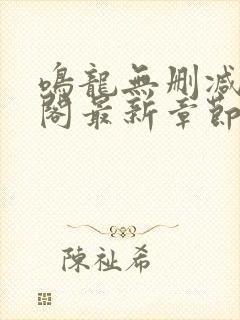 鳴龍無刪減
閣最新章節
陳祉希